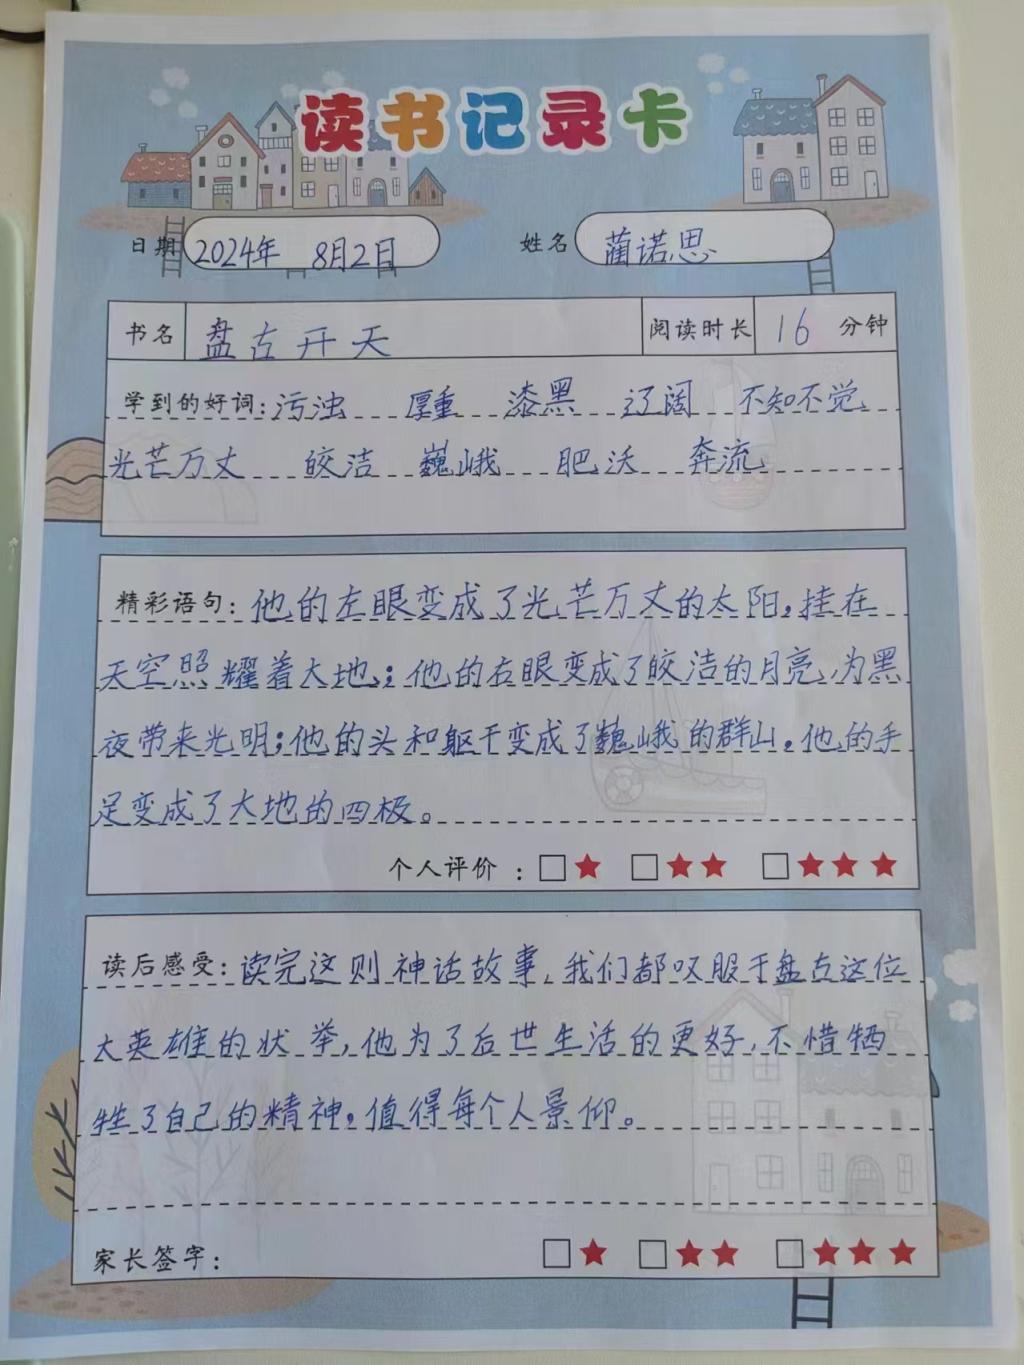 读书记录卡
日期 2024年 8月2日 姓名 蔺诺思
书名 盘古开天 阅读时长 16 分钟
学到的好词:污浊 厚重 漆黑 辽阔 不知不觉
光芒万丈 皎洁 巍峨 肥沃 奔流
精彩语句:他的左眼变成了光芒万丈的太阳,挂在
天空照耀着大地;他的右眼变成了皎洁的月亮,为黑
夜带来光明;他的头和躯干变成了巍峨的群山。他的手
足变成了大地的四极。
个人评价:□★ □★★ □★★★
读后感受:读完这则神话故事,我们都叹服于盘古这位
大英雄的状举,他为了后世生活的更好,不惜牺
牲了自己的精神,值得每个人景仰。
家长签字: □★ □★★ □★★★